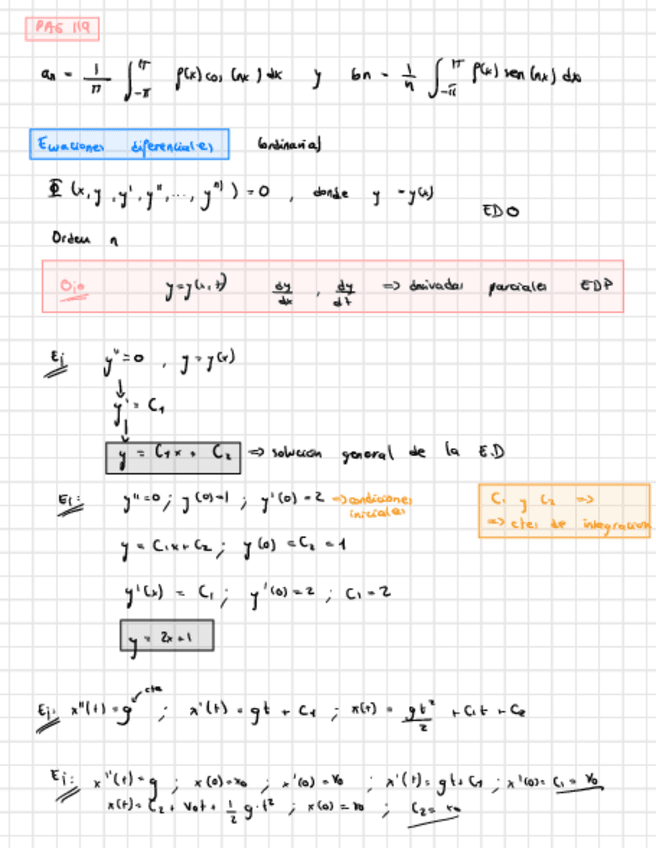 PAG 119
an = 1/π ∫_{-π}^{π} f(x) cos (nx) dx y bn = 1/π ∫_{-π}^{π} f(x) sen (nx) dx
Ecuaciones diferenciales (ordinaria)
Φ (x, y, y', y'', ..., yⁿ⁾) = 0 , donde y = y(x)
EDO
Orden n
Ojo y = y(x, t) dy/dx , dy/dt => derivadas parciales EDP
Ej y'' = 0 , y = y(x)
↓
y' = C₁
↓
y = C₁x + C₂ => solución general de la E.D
Ej: y'' = 0 ; y(0) = 1 ; y'(0) = 2 => condiciones iniciales
C₁ y C₂ =>
=> ctes de integración
y = C₁x + C₂ ; y(0) = C₂ = 1
y'(x) = C₁ ; y'(0) = 2 ; C₁ = 2
y = 2x + 1
Ej: x''(t) = g ← cte ; x'(t) = gt + C₁ ; x(t) = gt²/2 + C₁t + C₂
Ej: x''(t) = g ; x(0) = x₀ ; x'(0) = V₀ ; x'(t) = gt + C₁ ; x'(0) = C₁ = V₀
x(t) = C₂ + V₀t + 1/2 g·t² ; x(0) = x₀ ; C₂ = x₀